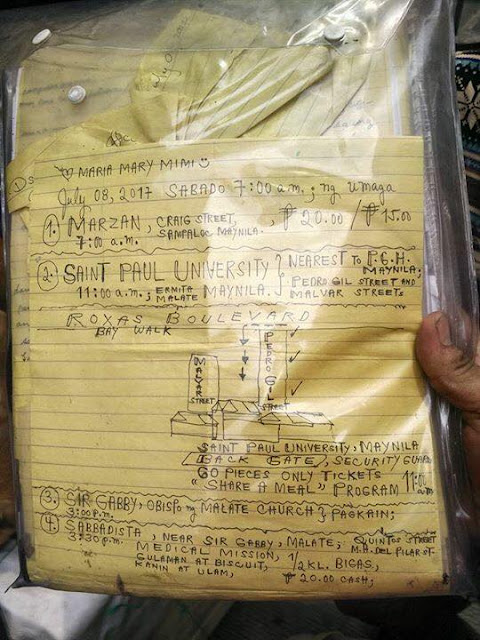 MARIA MARY MIMI
July 08, 2017 SABADO 7:00 a.m.; ng umaga
1. MARZAN, CRAIG STREET, SAMPALOC MAYNILA. ₱ 20.00 / ₱ 15.00
7:00 a.m.
2. SAINT PAUL UNIVERSITY NEAREST TO P.G.H. MAYNILA.
11:00 a.m.; ERMITA MALATE MAYNILA. PEDRO GIL STREET AND MALVAR STREETS
ROXAS BOULEVARD
BAY WALK
MALVAR STREET
PEDRO GIL STREET
SAINT PAUL UNIVERSITY, MAYNILA
BACK GATE, SECURITY GUARD
60 PIECES ONLY TICKETS 11:00 am
"SHARE A MEAL" PROGRAM
3. SIR GABBY, OBISPO ng MALATE CHURCH PAGKAIN;
3:00 p.m.
4. SABBADISTA, NEAR SIR GABBY, MALATE; QUINTOS STREET
3:30 p.m. MEDICAL MISSION, M.H. DEL PILAR ST.
GULAMAN AT BISCUIT, 1/2 KL. BIGAS,
KANIN AT ULAM, ₱ 20.00 CASH,